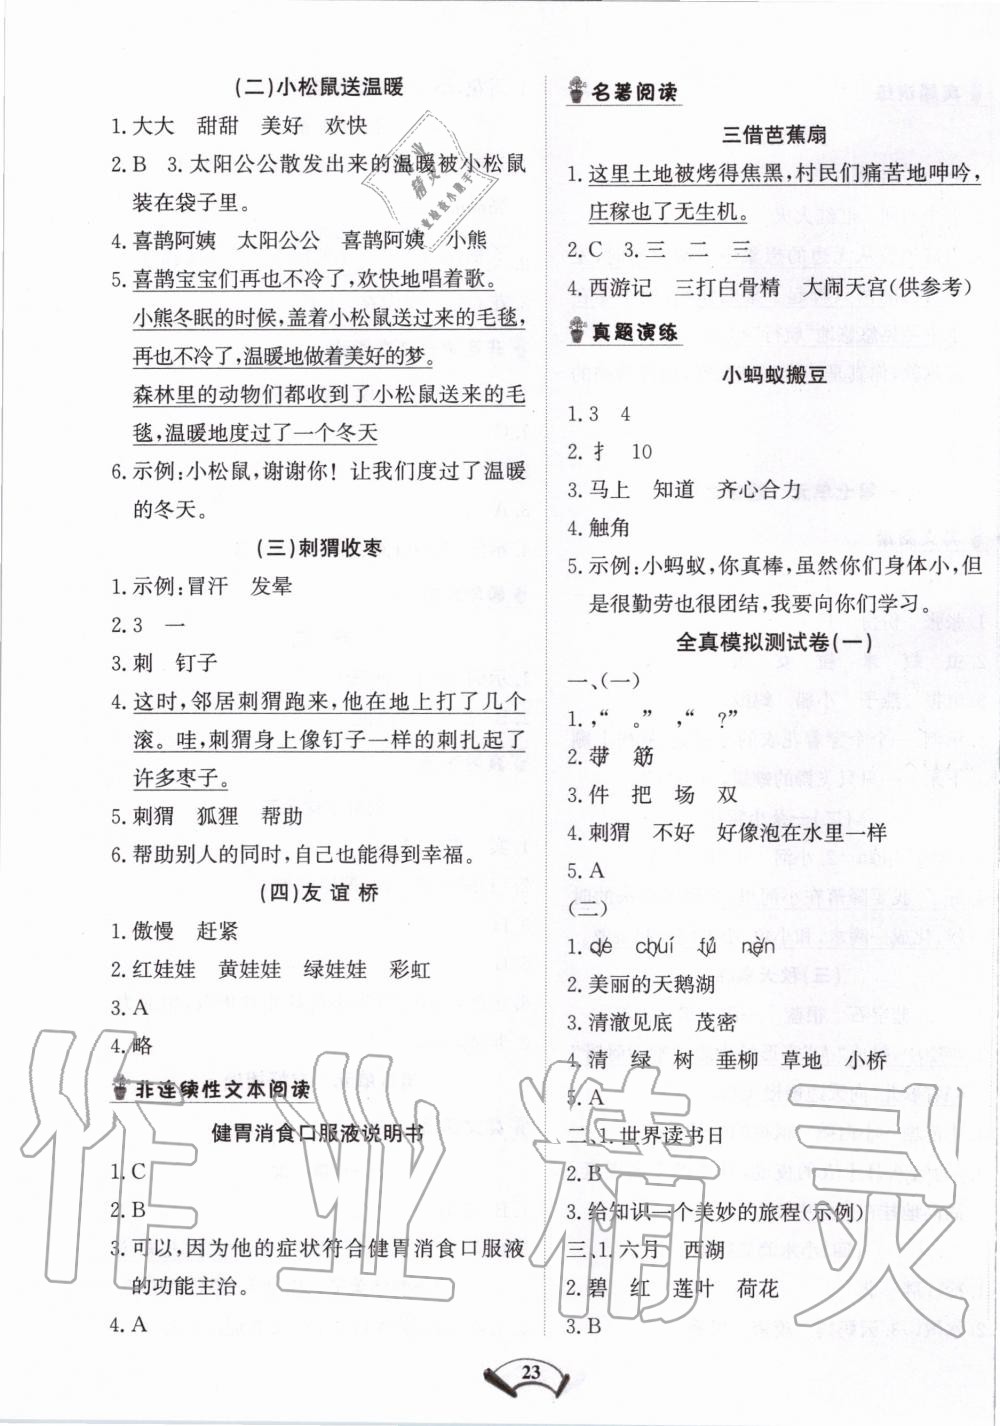 (二)小松鼠送温暖
1.大大 甜甜 美好 欢快
2.B 3.太阳公公散发出来的温暖被小松鼠
装在袋子里。
4.喜鹊阿姨 太阳公公 喜鹊阿姨 小熊
5.喜鹊宝宝们再也不冷了,欢快地唱着歌。
小熊冬眠的时候,盖着小松鼠送过来的毛毯,
再也不冷了,温暖地做着美好的梦。
森林里的动物们都收到了小松鼠送来的毛
毯,温暖地度过了一个冬天
6.示例:小松鼠,谢谢你！让我们度过了温暖
的冬天。
(三)刺猬收枣
1.示例:冒汗 发晕
2.3 一
3.刺 钉子
4.这时,邻居刺猬跑来,他在地上打了几个
滚。哇,刺猬身上像钉子一样的刺扎起了
许多枣子。
5.刺猬 狐狸 帮助
6.帮助别人的同时,自己也能得到幸福。
(四)友谊桥
1.傲慢 赶紧
2.红娃娃 黄娃娃 绿娃娃 彩虹
3.A
4.略
非连续性文本阅读
健胃消食口服液说明书
1.C
2.B
3.可以,因为他的症状符合健胃消食口服液
的功能主治。
4.A
名著阅读
三借芭蕉扇
1.这里土地被烤得焦黑,村民们痛苦地呻吟,
庄稼也了无生机。
2.C 3.三 二 三
4.西游记 三打白骨精 大闹天宫(供参考)
真题演练
小蚂蚁搬豆
1.3 4
2.扌 10
3.马上 知道 齐心合力
4.触角
5.示例:小蚂蚁,你真棒,虽然你们身体小,但
是很勤劳也很团结,我要向你们学习。
全真模拟测试卷(一)
一、(一)
1.,“ 。” ,“ ?”
2.带 筋
3.件 把 场 双
4.刺猬 不好 好像泡在水里一样
5.A
(二)
2.美丽的天鹅湖
3.清澈见底 茂密
4.清 绿 树 垂柳 草地 小桥
5.A
二、1.世界读书日
2.B
3.给知识一个美妙的旅程(示例)
三、1.六月 西湖
2.碧 红 莲叶 荷花
3.B
23
作业精灵